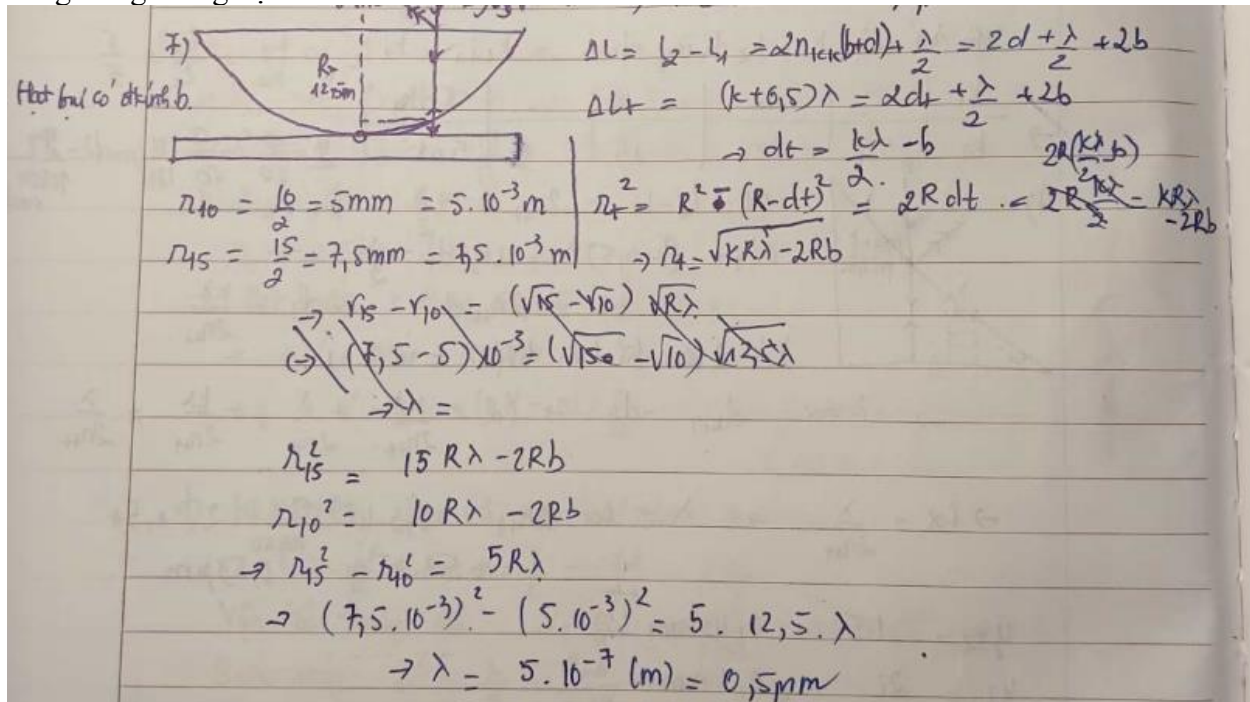 7)
R =
12,5m
Hạt bụi có đk bính b.
ΔL = L₂ - L₁ = 2n_kk(b+d) + λ/2 = 2d + λ/2 + 2b
ΔLt = (k+0,5)λ = 2dt + λ/2 + 2b
→ dt = kλ/2 - b
2R(kλ/2 - b)
r₁₀ = 10/2 = 5mm = 5.10⁻³ m
rt² = R² - (R-dt)² = 2Rdt = 2R kλ/2 = kRλ - 2Rb
r₁₅ = 15/2 = 7,5mm = 7,5.10⁻³ m
→ rt = √(kRλ - 2Rb)
→ r₁₅ - r₁₀ = (√15 - √10) √Rλ
(→) (7,5 - 5)10⁻³ = (√15 - √10) √12,5λ
→ λ =
r₁₅² = 15Rλ - 2Rb
r₁₀² = 10Rλ - 2Rb
→ r₁₅² - r₁₀² = 5Rλ
→ (7,5.10⁻³)² - (5.10⁻³)² = 5.12,5.λ
→ λ = 5.10⁻⁷ (m) = 0,5μm